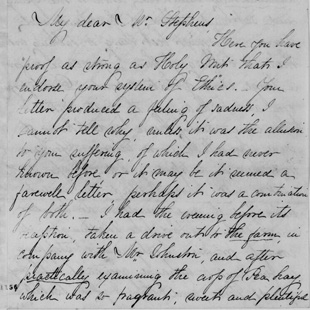 My dear Mr. Stephens
Here you have
proof as strong as Holy Writ that I
endorse your system of Ethics. Your
letter produced a feeling of sadness I
cannot tell why unless, it was the allusion
to your suffering, of which I had never
known before or it may be it seemed a
farewell letter perhaps it was a combination
of both. – I had the evening before its
reception, taken a drive out to the farm, in
company with Mr Johnston, and after
practically examining the crop of Pea hay
which was so fragrant, sweet and plentiful